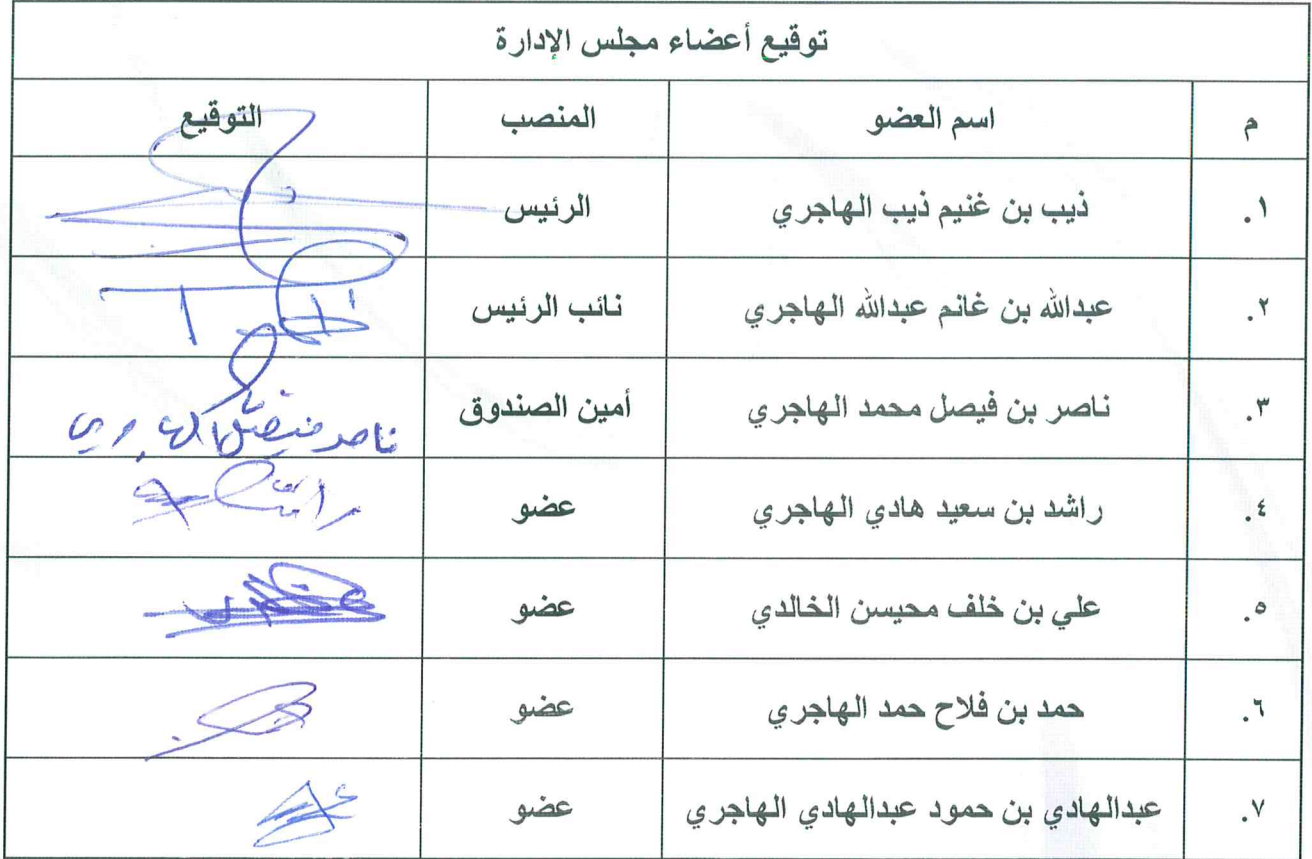 توقيع أعضاء مجلس الإدارة
م اسم العضو المنصب التوقيع
١. ذيب بن غنيم ذيب الهاجري الرئيس
٢. عبدالله بن غانم عبدالله الهاجري نائب الرئيس
٣. ناصر بن فيصل محمد الهاجري أمين الصندوق ناصر فيصل الهاجري
٤. راشد بن سعيد هادي الهاجري عضو
٥. علي بن خلف محيسن الخالدي عضو
٦. حمد بن فلاح حمد الهاجري عضو
٧. عبدالهادي بن حمود عبدالهادي الهاجري عضو